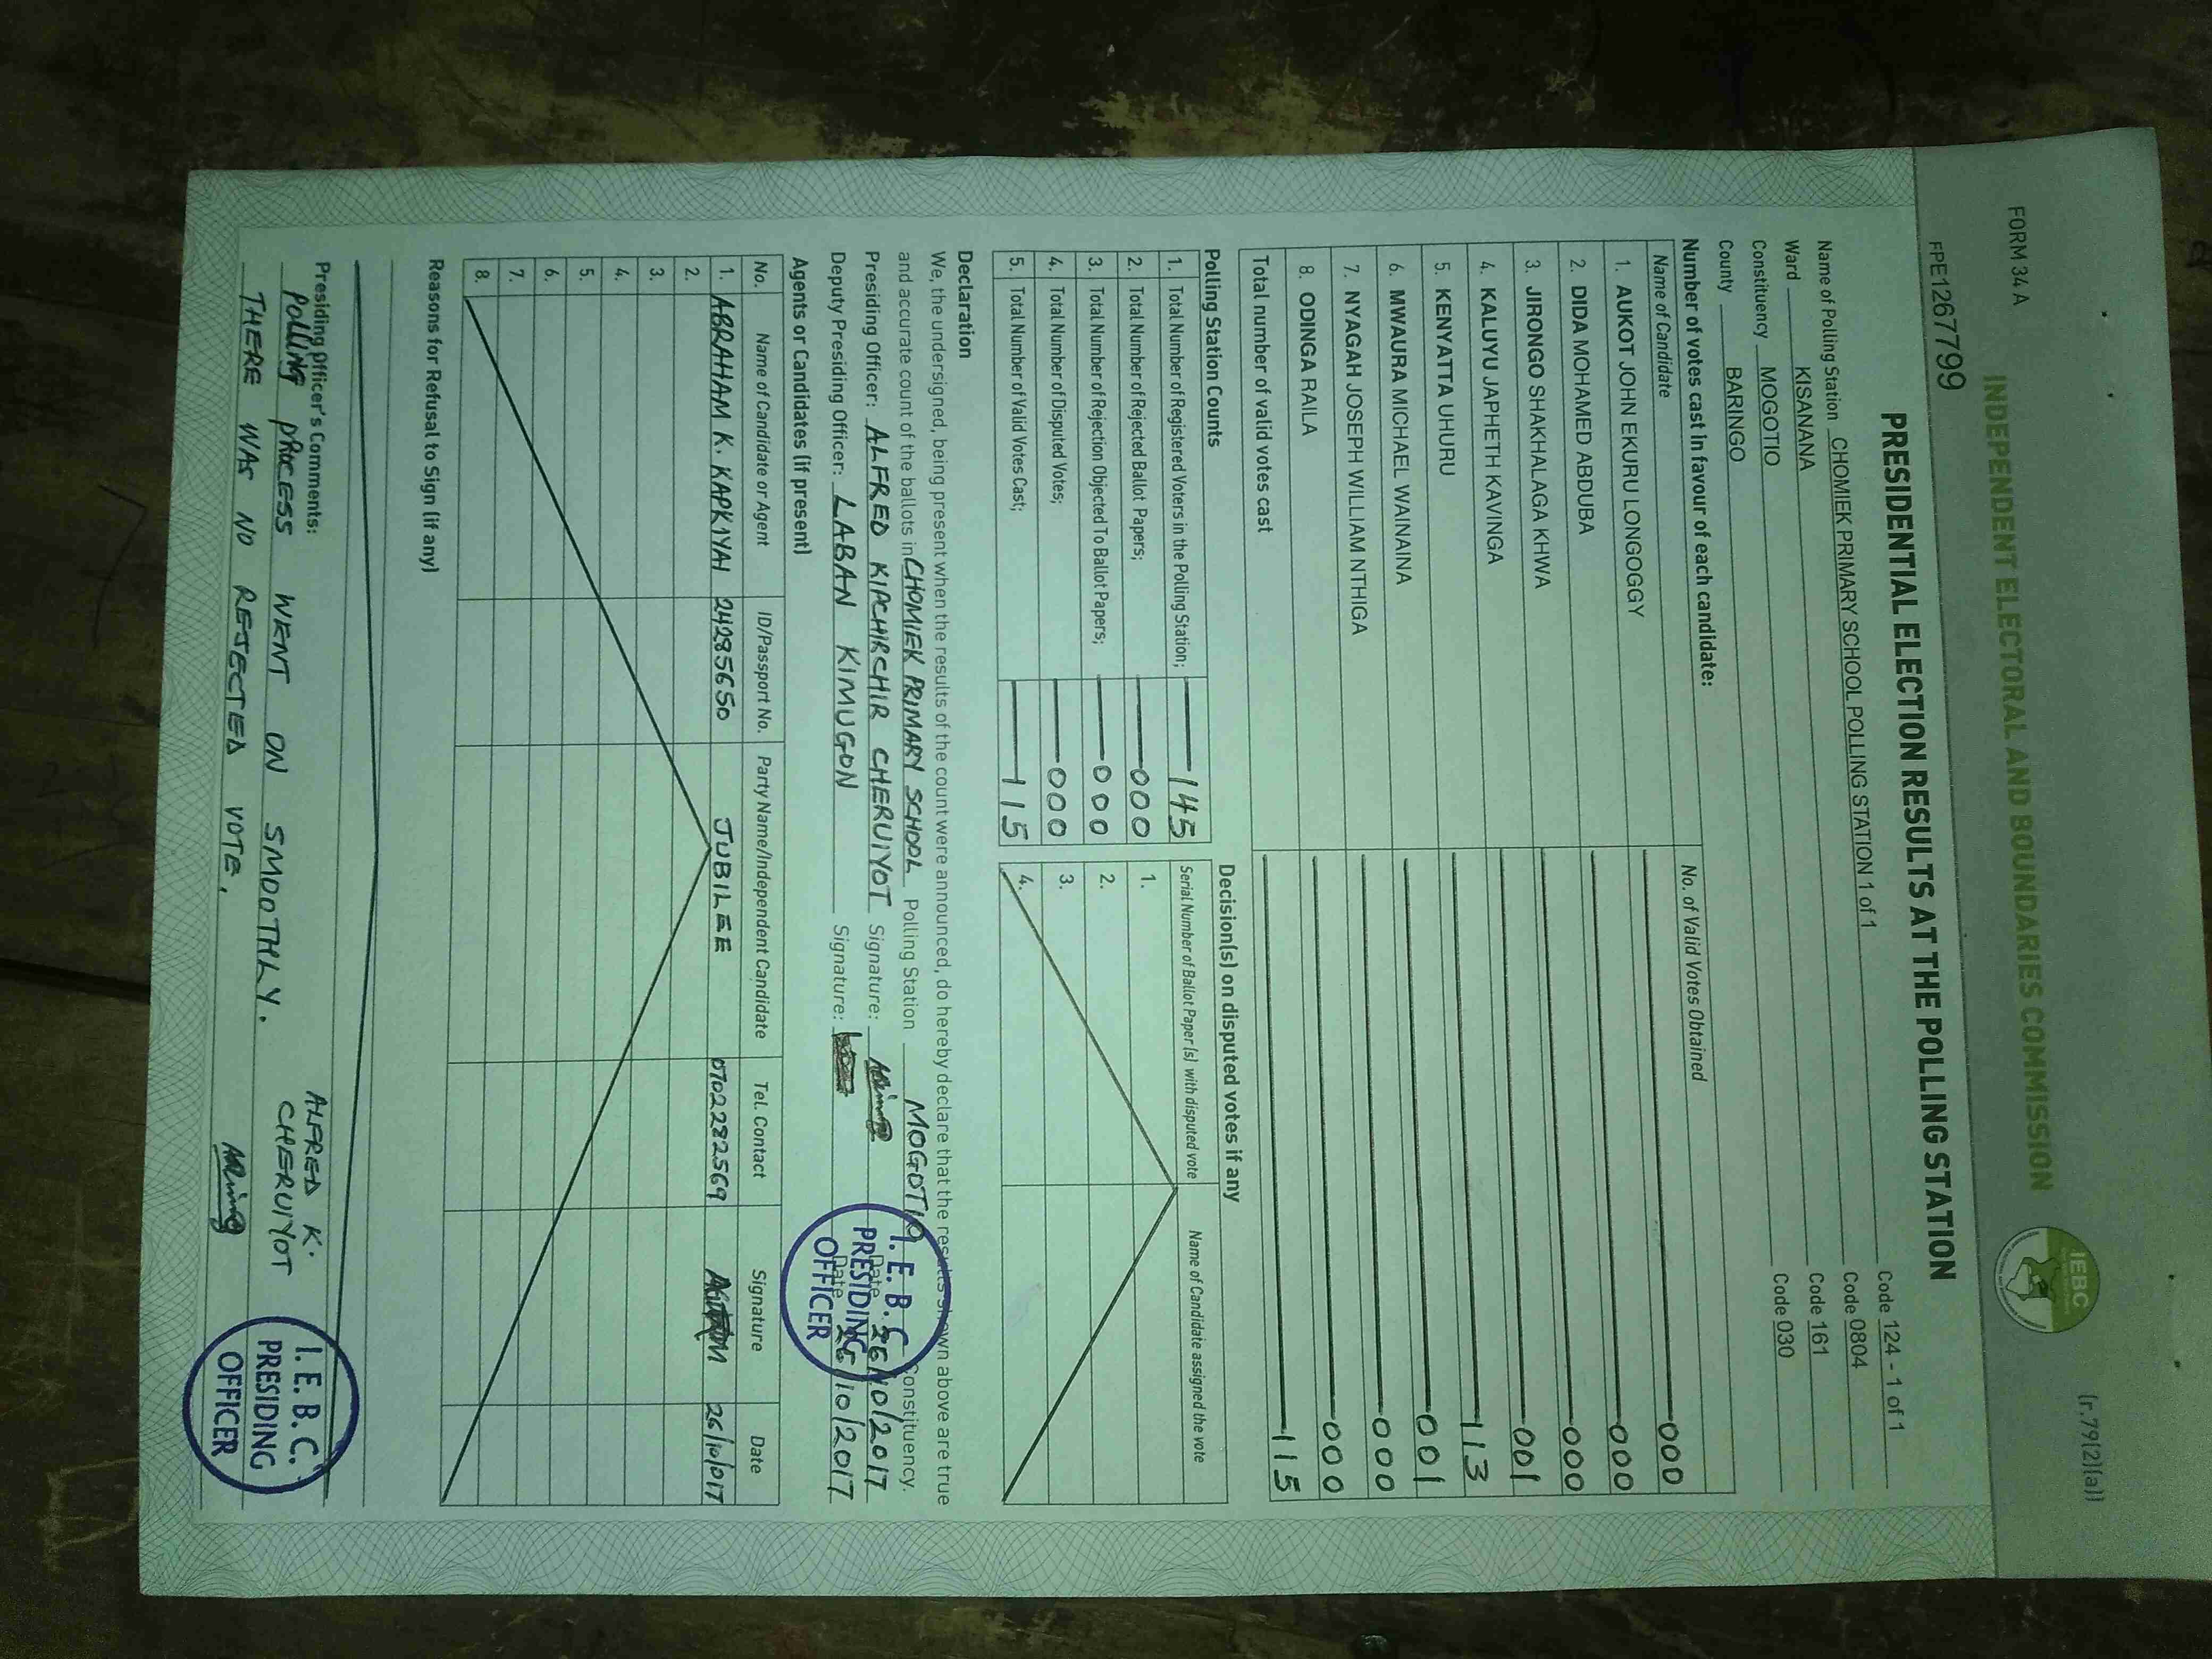 FORM 34 A (r.79(2)(a))
INDEPENDENT ELECTORAL AND BOUNDARIES COMMISSION
IEBC
FPE1267799
PRESIDENTIAL ELECTION RESULTS AT THE POLLING STATION
Name of Polling Station CHOMIEK PRIMARY SCHOOL POLLING STATION 1 of 1 Code 124 - 1 of 1
Ward KISANANA Code 0804
Constituency MOGOTIO Code 161
County BARINGO Code 030
Number of votes cast in favour of each candidate:
Name of Candidate No. of Valid Votes Obtained
1. AUKOT JOHN EKURU LONGOGGY 000
2. DIDA MOHAMED ABDUBA 000
3. JIRONGO SHAKHALAGA KHWA 000
4. KALUYU JAPHETH KAVINGA 001
5. KENYATTA UHURU 113
6. MWAURA MICHAEL WAINAINA 001
7. NYAGAH JOSEPH WILLIAM NTHIGA 000
8. ODINGA RAILA 000
Total number of valid votes cast 115
Polling Station Counts
1. Total Number of Registered Voters in the Polling Station; 145
2. Total Number of Rejected Ballot Papers; 000
3. Total Number of Rejection Objected To Ballot Papers; 000
4. Total Number of Disputed Votes; 000
5. Total Number of Valid Votes Cast; 115
Decision(s) on disputed votes if any
Serial Number of Ballot Paper (s) with disputed vote Name of Candidate assigned the vote
1.
2.
3.
4.
Declaration
We, the undersigned, being present when the results of the count were announced, do hereby declare that the results shown above are true
and accurate count of the ballots in CHOMIEK PRIMARY SCHOOL Polling Station MOGOTIO Constituency.
Presiding Officer: ALFRED KIPCHIRCHIR CHERUIYOT Signature: Date 26/10/2017
Deputy Presiding Officer: LABAN KIMUGON Signature: Date 26/10/2017
I. E. B. C.
PRESIDING
OFFICER
Agents or Candidates (if present)
No. Name of Candidate or Agent ID/Passport No. Party Name/Independent Candidate Tel. Contact Signature Date
1. ABRAHAM K. KAPKIYAI 24285650 JUBILEE 0702282569 26/10/017
2.
3.
4.
5.
6.
7.
8.
Reasons for Refusal to Sign (if any)
Presiding Officer's Comments:
POLLING PROCESS WENT ON SMOOTHLY.
THERE WAS NO REJECTED VOTE.
ALFRED K.
CHERUIYOT
I. E. B. C.
PRESIDING
OFFICER